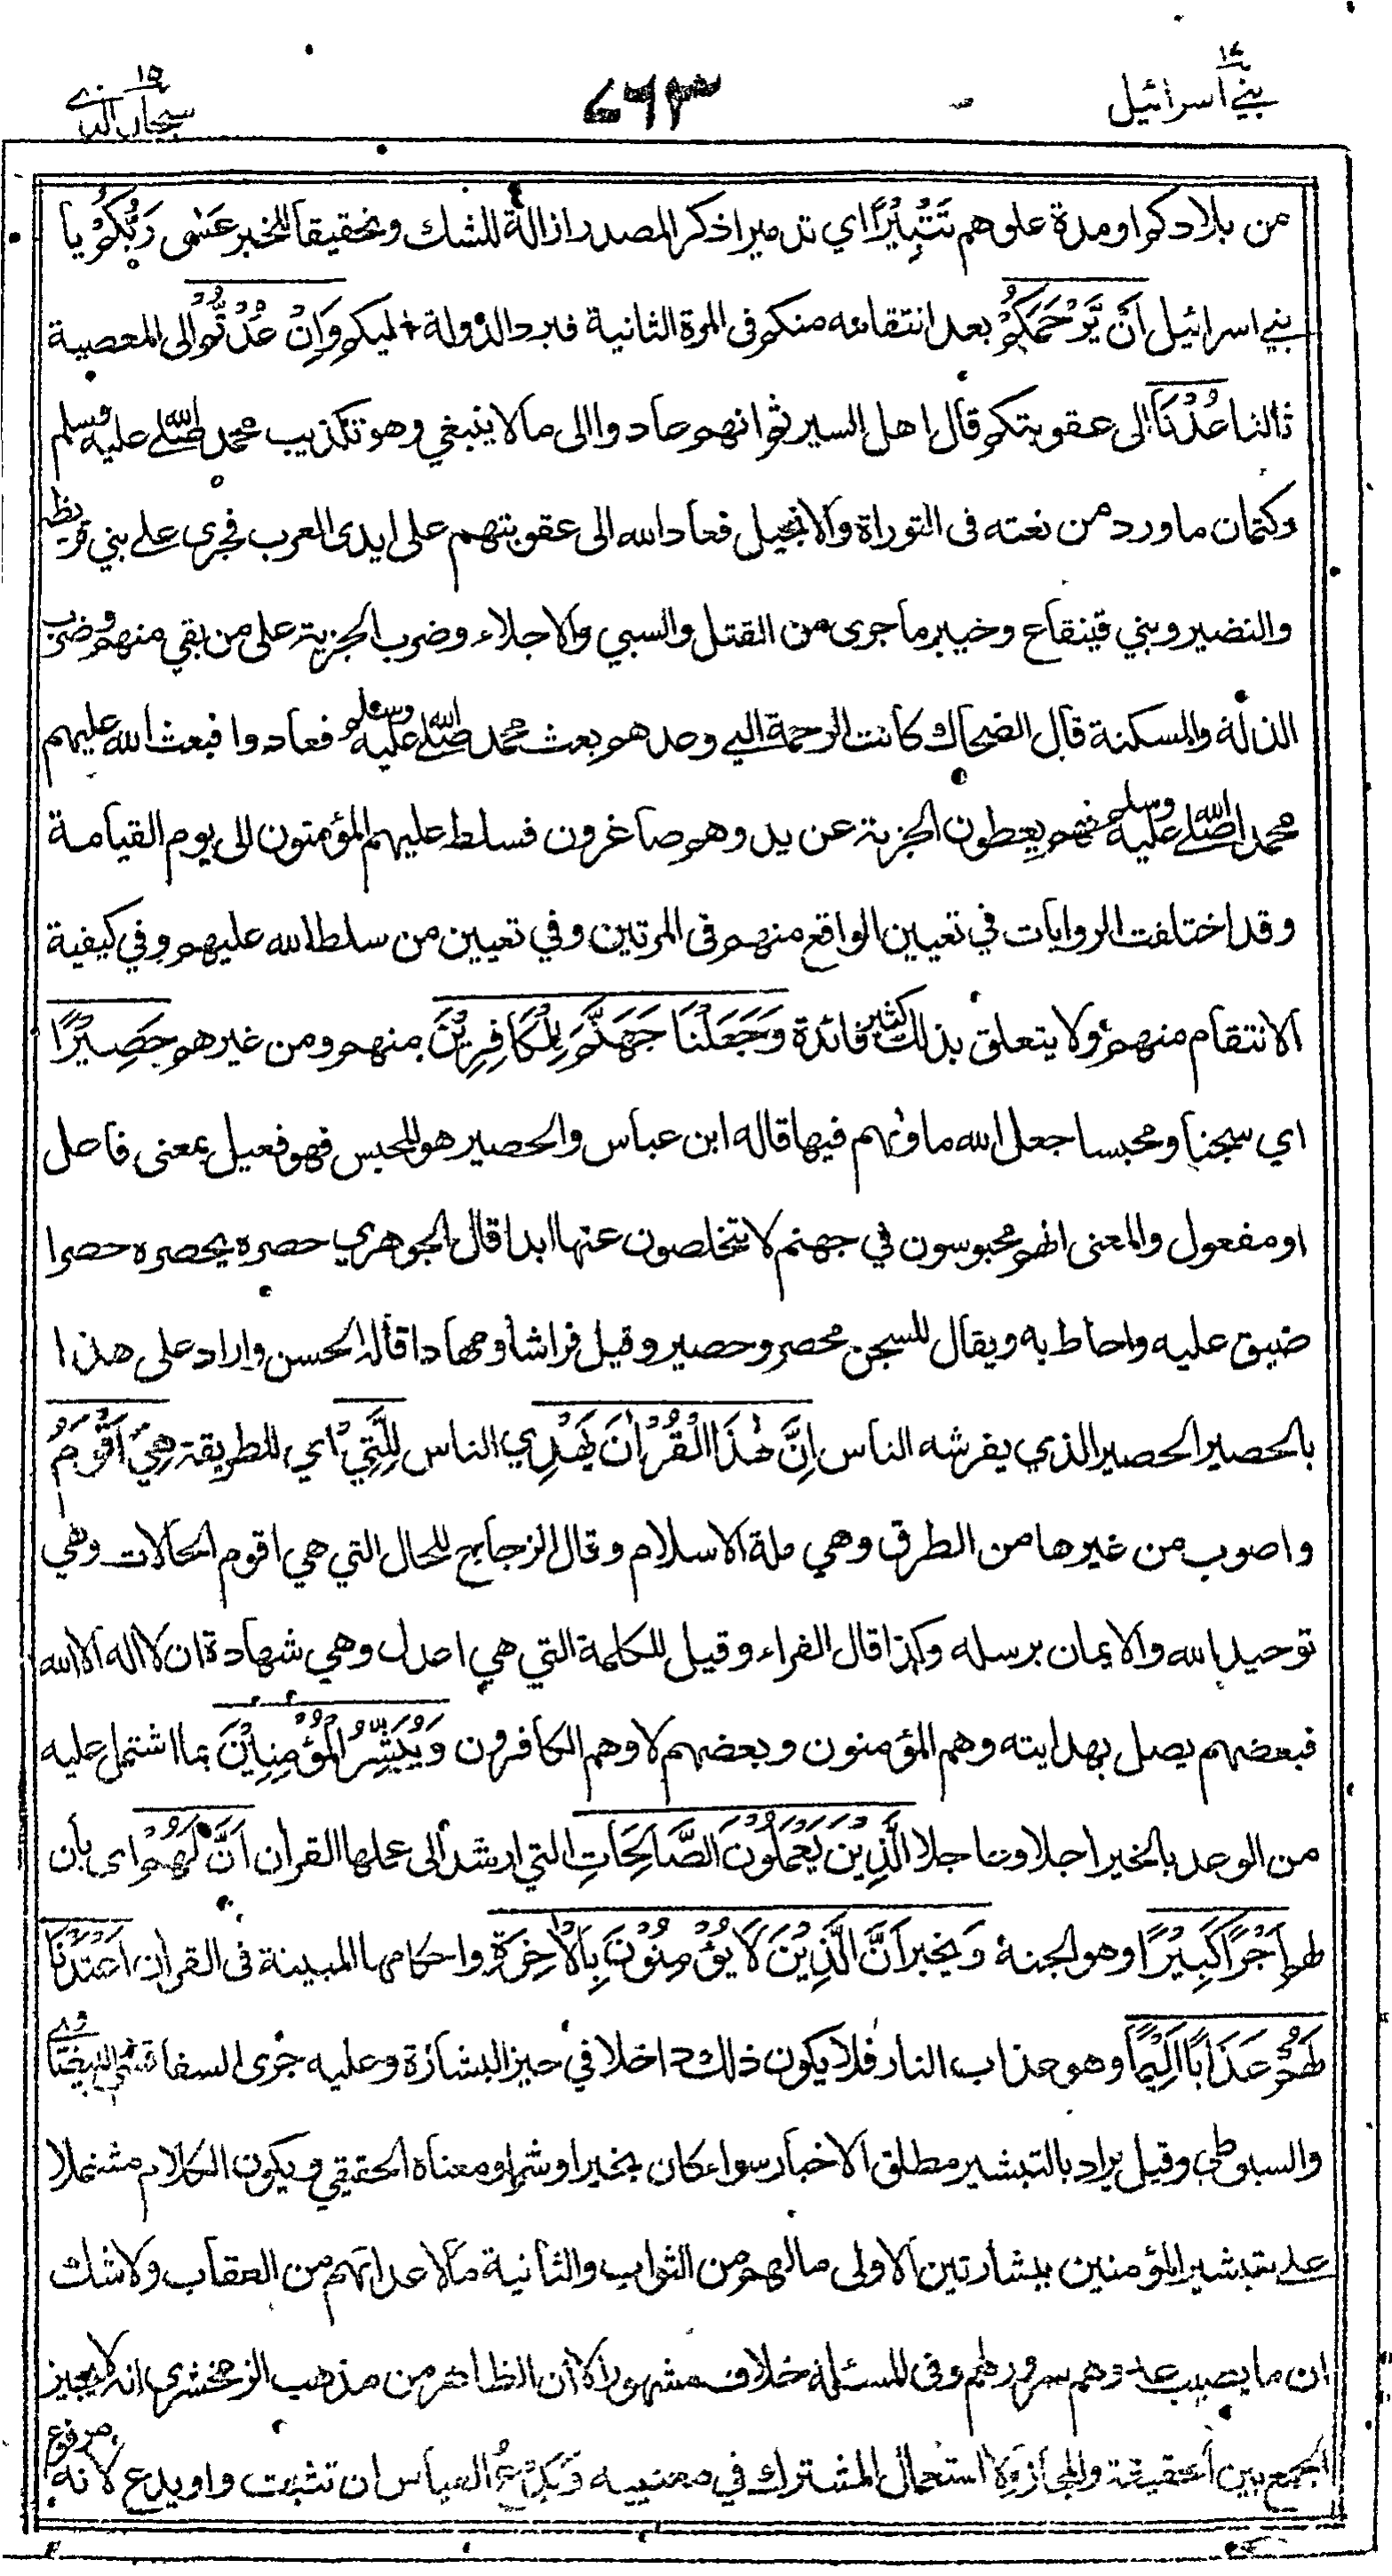 بني اسرائيل ١٧
٧٦٣
سبحان الذي ١٥
من بلادكم او مدة علوهم تَتْبِيْرًا اي تدميرا ذكر المصدر ازالة للشك وتحقيقا للخبر عَسٰى رَبُّكُمْ يا
بني اسرائيل اَنْ يَّرْحَمَكُمْ بعد انتقامه منكم فى المرة الثانية فيرد الدولة اليكم وَاِنْ عُدْتُّمْ الى المعصية
ثالثا عُدْنَا الى عقوبتكم قال اهل السير ثم انهم عادوا الى ما لا ينبغي وهو تكذيب محمد صلى الله عليه وسلم
وكتمان ما ورد من نعته فى التوراة والانجيل فعاد الله الى عقوبتهم على ايدى العرب فجرى على بني قريظة
والنضير وبني قينقاع وخيبر ما جرى من القتل والسبي والاجلاء وضرب الجزية على من بقي منهم وضرب
الذلة والمسكنة قال الضحاك كانت الرحمة التي وعدهم بعث محمد صلى الله عليه وسلم فعادوا فبعث الله عليهم
محمدا صلى الله عليه وسلم فهم يعطون الجزية عن يد وهم صاغرون فسلط عليهم المؤمنون الى يوم القيامة
وقد اختلفت الروايات في تعيين الواقع منهم فى المرتين وفي تعيين من سلط الله عليهم وفي كيفية
الانتقام منهم ولا يتعلق بذلك كثير فائدة وَجَعَلْنَا جَهَنَّمَ لِلْكَافِرِيْنَ منهم ومن غيرهم حَصِيْرًا
اي سجنا ومحبسا جعل الله ماوٰهم فيها قاله ابن عباس والحصير هو المحبس فهو فعيل بمعنى فاعل
او مفعول والمعنى انهم محبوسون في جهنم لا يتخلصون عنها ابدا قال الجوهري حصره يحصره حصرا
ضيق عليه واحاط به ويقال للسجن محصر وحصير وقيل فراشا ومهادا قاله الحسن واراد على هذا
بالحصير الحصير الذي يفرشه الناس اِنَّ هٰذَا الْقُرْاٰنَ يَهْدِي الناس لِلَّتِيْ اي للطريقة هِيَ اَقْوَمُ
واصوب من غيرها من الطرق وهي ملة الاسلام وقال الزجاج للحال التي هي اقوم الحالات وهي
توحيد الله والايمان برسله وكذا قال الفراء وقيل للكلمة التي هي اعدل وهي شهادة ان لا اله الا الله
فبعضهم يصل بهدايته وهم المؤمنون وبعضهم لا وهم الكافرون وَيُبَشِّرُ الْمُؤْمِنِيْنَ بما اشتمل عليه
من الوعد بالخير اجلا وعاجلا الَّذِيْنَ يَعْمَلُوْنَ الصَّالِحَاتِ التي ارشد الى عملها القرأن اَنَّ لَهُمْ اى بأن
لهم اَجْرًا كَبِيْرًا وهو الجنة وَيخبر اَنَّ الَّذِيْنَ لَا يُؤْمِنُوْنَ بِالْاٰخِرَةِ واحكامها المبينة فى القرأن اَعْتَدْنَا
لَهُمْ عَذَابًا اَلِيْمًا وهو عذاب النار فلا يكون ذلك داخلا في حيز البشارة وعليه جرى السفاقسي والبيضاوي
والسيوطي وقيل يراد بالتبشير مطلق الاخبار سواء كان بخير او شر او معناه الحقيقي ويكون الكلام مشتملا
على تبشير المؤمنين ببشارتين الاولى ما لهم من الثواب والثانية ما لاعدائهم من العقاب ولا شك
ان ما يصيب عدوهم سرور لهم وفى المسئلة خلاف مشهور الا ان الظاهر من مذهب الزمخشري انه لا يجيز
الجمع بين الحقيقة والمجاز ولا استعمال المشترك في معنييه وَيَدْعُ القياس ان تثبت واو يدع لانه مرفوع